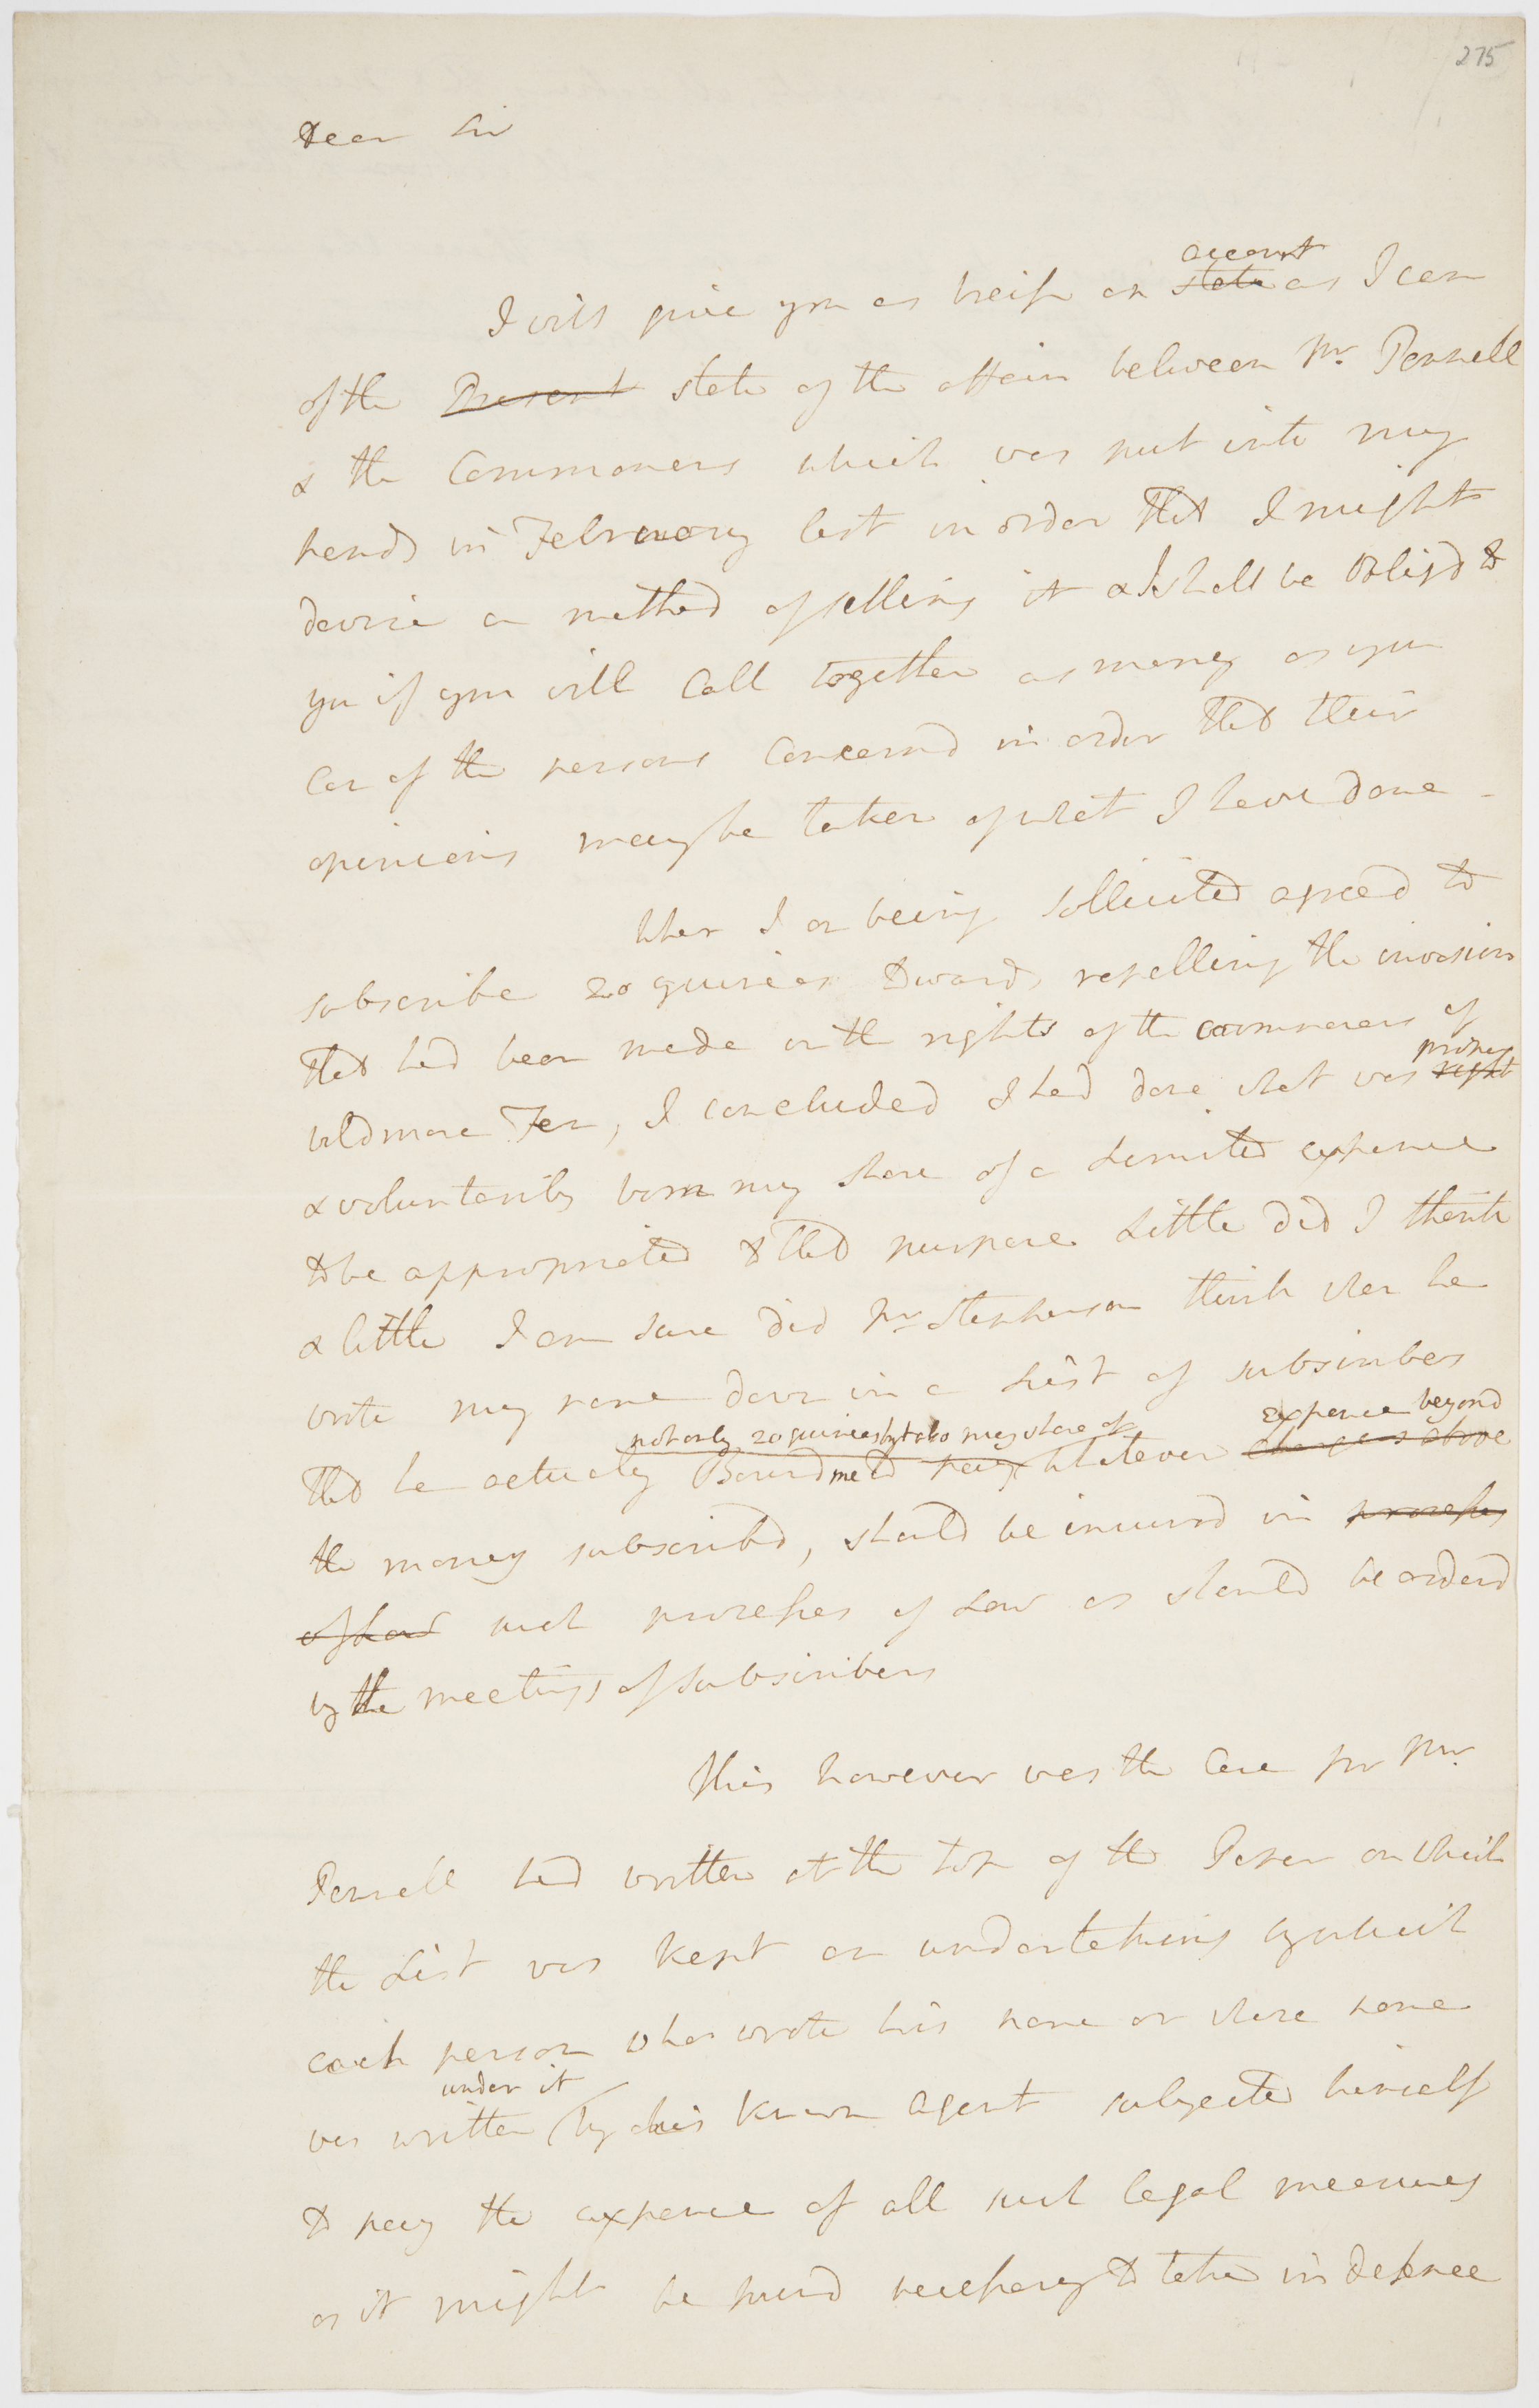 275
Dear Sir
account
I will give you as breif an state as I can
of the Present state of the affair between Mr. Parnell
& the Commoners which was put into my
hands in February last in order that I might
devise a method of settling it & I shall be obligd to
you if you will Call together as many as you
Can of the persons Concernd in order that their
opinions may be taken of what I have done -
When I on being sollicited agreed to
subscribe 20 guineas towards repelling the invasion
that had been made on the rights of the commoners of
proper
wildmore Fen, I concluded I had done what was right
& voluntarily born my share of a Limited expence
to be appropriated to that purpose Little did I think
& little I am sure did Mr Stephenson think when he
wrote my name down in a List of subscribers
not only 20 guineas but also my share of expence beyond
that he actualy Bound me to pay whatever charges above
the money subscribd, should be incurrd in processes
of Law such processes of Law as should be orderd
by the meetings of subscribers
This however was the Case for Mr.
Parnell had written at the top of the Paper on which
the List was kept an undertaking by which
each person who wrote his name or whose name
under it
was written by his known agent subjected himself
to pay the expence of all such legal measures
as it might be found necessary to take in defence